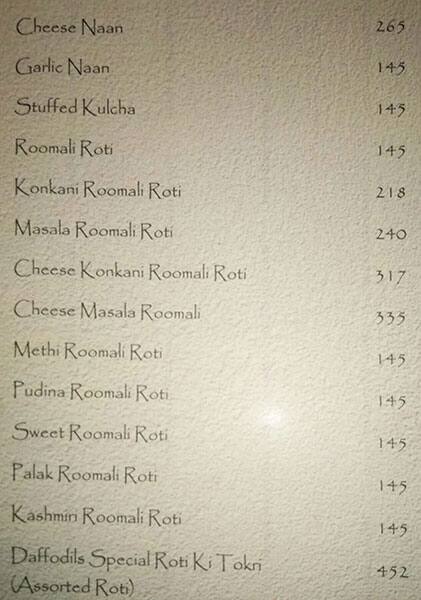 Cheese Naan 265
Garlic Naan 145
Stuffed Kulcha 145
Roomali Roti 145
Konkani Roomali Roti 218
Masala Roomali Roti 240
Cheese Konkani Roomali Roti 317
Cheese Masala Roomali 335
Methi Roomali Roti 145
Pudina Roomali Roti 145
Sweet Roomali Roti 145
Palak Roomali Roti 145
Kashmiri Roomali Roti 145
Daffodils Special Roti Ki Tokri 452
(Assorted Roti)